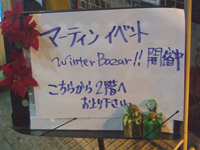 マーティン イベント
Winter Bazar!! 開催中
こちらから2階へ
お上り下さい